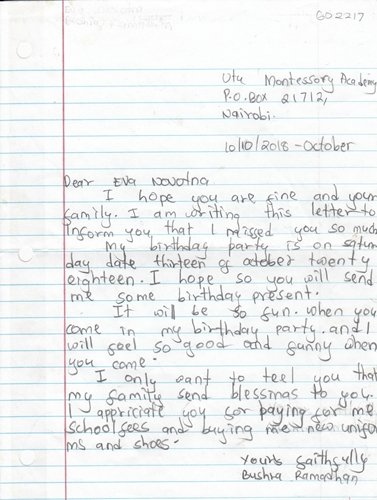 GO2217
Utu Montessory Academy
P.O.Box 21712,
Nairobi.
10/10/2018 - October
Dear Eva Novotna
I hope you are fine and your
family. I am writing this letter to
Inform you that I missed you so much
My birthday party is on satur
day date thirteen of october twenty
eighteen. I hope so you will send
me some birthday present.
It will be so fun. when you
come in my birthday party. and I
will feel so good and funny when
you come.
I only want to teel you that
my family send blessings to you.
I appriciate you for paying for me
school fees and buying me new unifor
ms and shoes.
Yours faithfully
Bushra Ramadhan